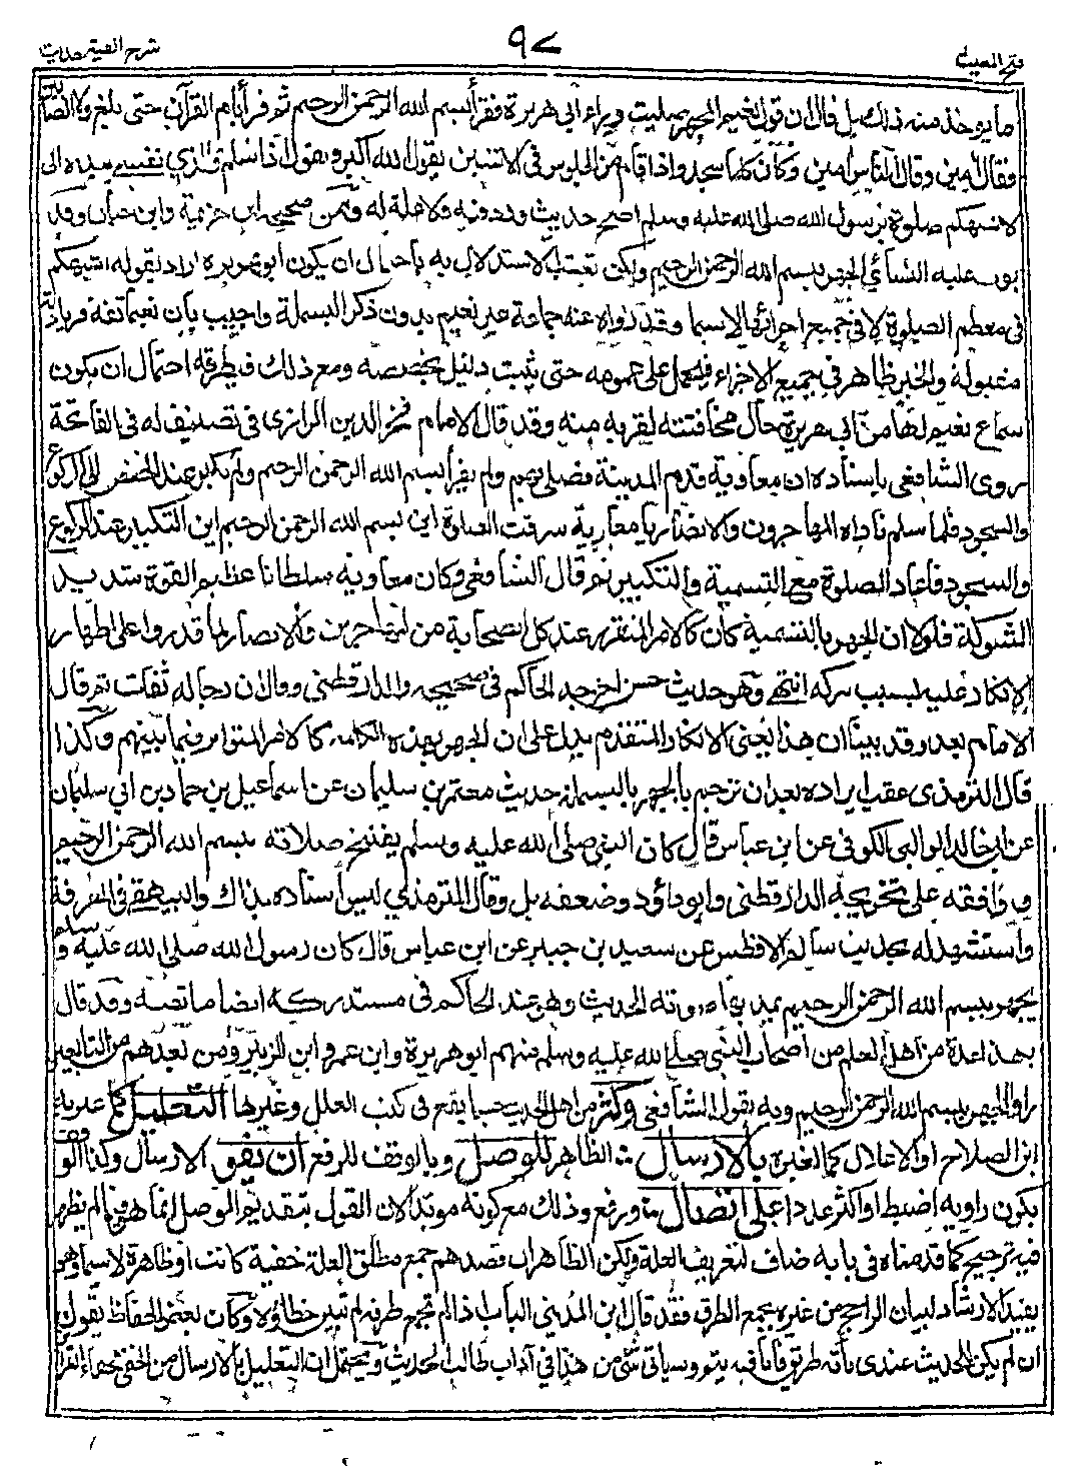 فتح المغيث ٩٧ شرح الفية حديث
ما يوخذ منه ذلك بل قال ان قول نعيم المجمر صليت وراء ابي هريرة فقرأ بسم الله الرحمن الرحيم ثم قرأ بام القرآن حتى بلغ ولا الضالين
فقال آمين وقال الناس آمين وكان كلما سجد واذا قام من الجلوس في الاثنين يقول الله اكبر ويقول اذا سلم والذي نفسي بيده اني
لاشبهكم صلوة برسول الله صلى الله عليه وسلم اصح حديث ورد فيه ولا علة له وممن صححه ابن خزيمة وابن حبان وقد
بوب عليه النسائي الجهر ببسم الله الرحمن الرحيم ولكن تعقب الاستدلال به باحتمال ان يكون ابو هريرة اراد بقوله اشبهكم
في معظم الصلوة لا في جميع اجزائها لا سيما وقد رواه عنه جماعة غير نعيم بدون ذكر البسملة واجيب بان نعيما ثقة فزيادته
مقبولة والخبر ظاهر في جميع الاجزاء فيحمل على عمومه حتى يثبت دليل يخصصه ومع ذلك فيطرقه احتمال ان يكون
سماع نعيم لها من ابي هريرة حال مخافتته لقربه منه وقد قال الامام فخر الدين الرازي في تصنيف له في الفاتحة
روى الشافعي باسناده ان معاوية قدم المدينة فصلى بهم ولم يقرأ بسم الله الرحمن الرحيم ولم يكبر عند الخفض الى الركوع
والسجود فلما سلم ناداه المهاجرون والانصار يا معاوية سرقت الصلوة اين بسم الله الرحمن الرحيم اين التكبير عند الركوع
والسجود فاعاد الصلوة مع التسمية والتكبير ثم قال الشافعي وكان معاوية سلطانا عظيم القوة شديد
الشوكة فلولا ان الجهر بالتسمية كان كالامر المتقرر عند كل الصحابة من المهاجرين والانصار لما قدروا على اظهار
الانكار عليه بسبب تركه انتهى وهو حديث حسن اخرجه الحاكم في صحيحه والدارقطني وقال ان رجاله ثقات ثم قال
الامام بعد وقد بينا ان هذا يعني الانكار المتقدم يدل على ان الجهر بهذه الكلمة كالامر المتواتر فيما بينهم وكذا
قال الترمذي عقب ايراده بعد ان ترجم بالجهر بالبسملة حديث معتمر بن سليمان عن اسماعيل بن حماد بن ابي سليمان
عن ابي خالد الوالبي الكوفي عن ابن عباس قال كان النبي صلى الله عليه وسلم يفتتح صلاته ببسم الله الرحمن الرحيم
ووافقه على تخريجه الدارقطني وابو داؤد وضعفه بل وقال الترمذي ليس اسناده بذاك والبيهقي في المعرفة
واستشهد له بحديث سالم الافطس عن سعيد بن جبير عن ابن عباس قال كان رسول الله صلى الله عليه وسلم
يجهر ببسم الله الرحمن الرحيم يمد بها صوته الحديث وهو عند الحاكم في مستدركه ايضا ما نصه وقد قال
بهذا عدة من اهل العلم من اصحاب النبي صلى الله عليه وسلم منهم ابو هريرة وابن عمر وابن الزبير ومن بعدهم من التابعين
راوا الجهر ببسم الله الرحمن الرحيم وبه يقول الشافعي وكثر من اهل الحديث حسبما يقع في كتب العلل وغيرها التعليل كما عبر به
ابن الصلاح او الاعلال كما لغيره بالارسال الظاهر للوصل وبالوقف للرفع ان يقو الارسال وكذا الوقف
بكون راويه اضبط او اكثر عددا على اتصال ورفع وذلك مع كونه مؤيدا لان القول بتقديم الوصل انما هو فيما لم يظهر
فيه ترجيح كما قدمناه في بابه مناف لتعريف العلة ولكن الظاهر ان قصدهم جمع مطلق العلة خفية كانت او ظاهرة لا سيما وهو
يفيد الارشاد لبيان الراجح من غيره بجمع الطرق فقد قال ابن المديني الباب اذا لم تجمع طرقه لم تتبين خطاؤه وكان بعض الحفاظ يقول
ان لم يكن الحديث عندي من مائة طريق فانا فيه يتيم وسياتي شئ من هذا في آداب طالب الحديث ويحتمل ان التعليل بالارسال من الخفي